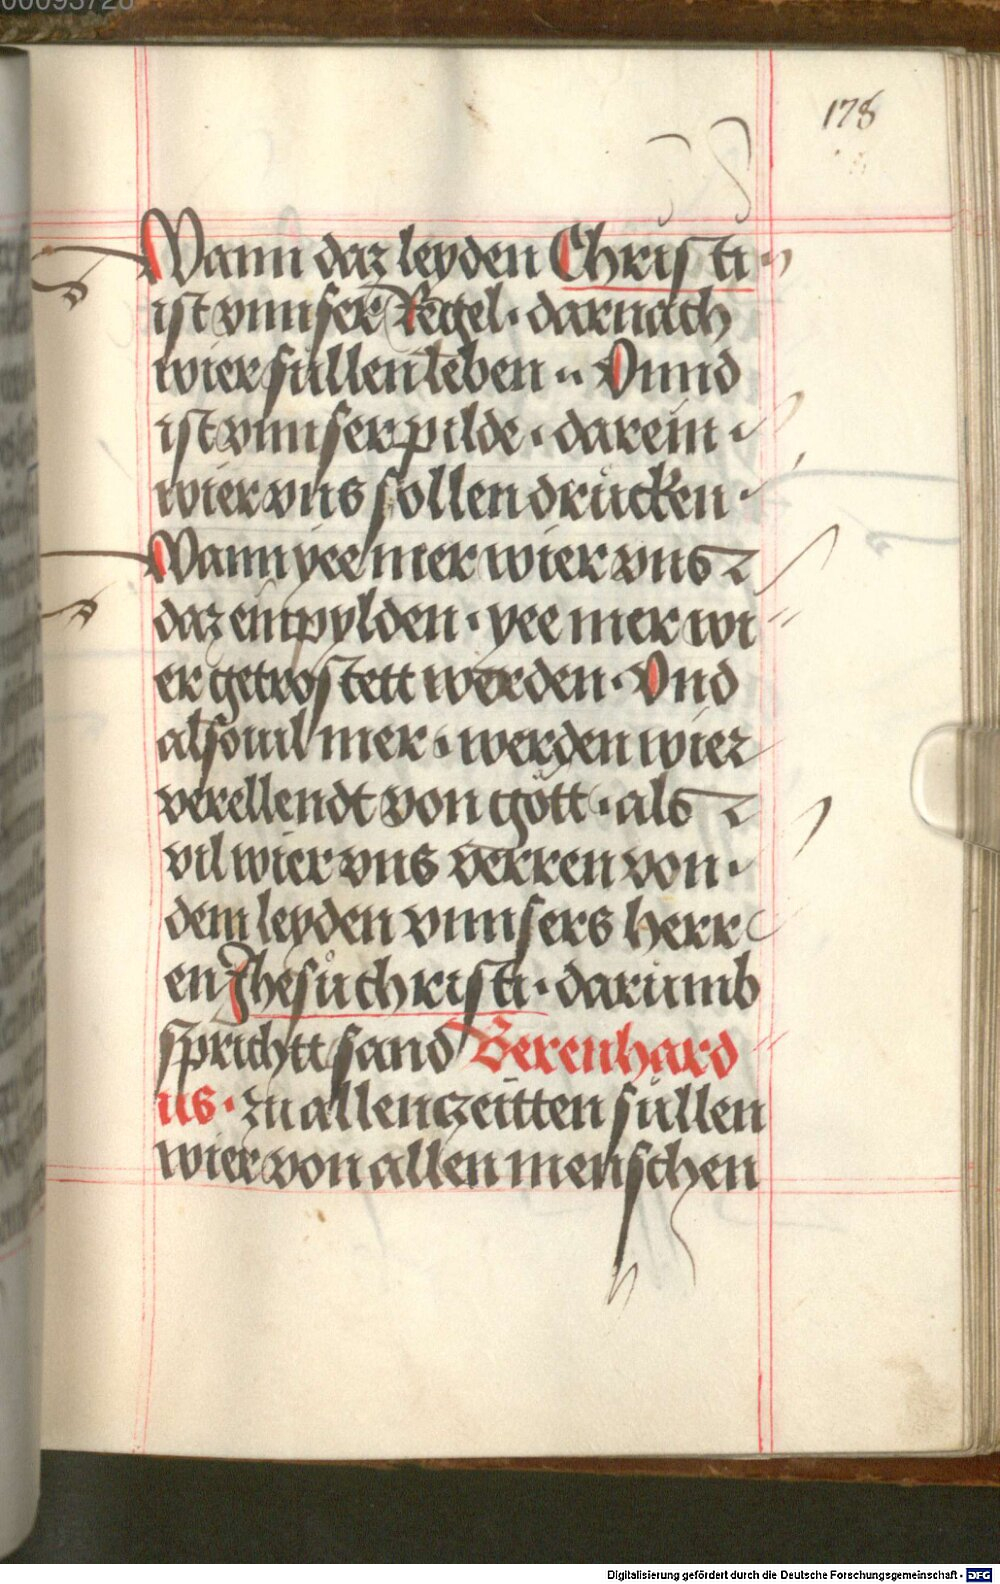 178
Wann daz leyden Christi
ist vnnser Regel · darnach
wier sullen leben ·· Vnnd
ist vnnser pilde · darein ·
wier vns sollen drücken ·
Wann yee mer wier vns
daz einpylden · yee mer wi
er getrostett werden · Vnd
alsouil mer · werden wier
verellendt von gött · als
vil wier vns verren von ·
dem leyden vnnsers herr
en Jhesu christi · darumb
sprichtt sand Berenhard
us · zu allen czeitten sullen
wier von allen menschen
Digitalisierung gefördert durch die Deutsche Forschungsgemeinschaft · DFG